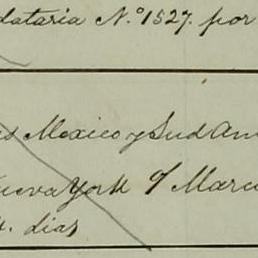 dataria N.º 1527. por
Mexico y Sud Am
Nueva York
dias